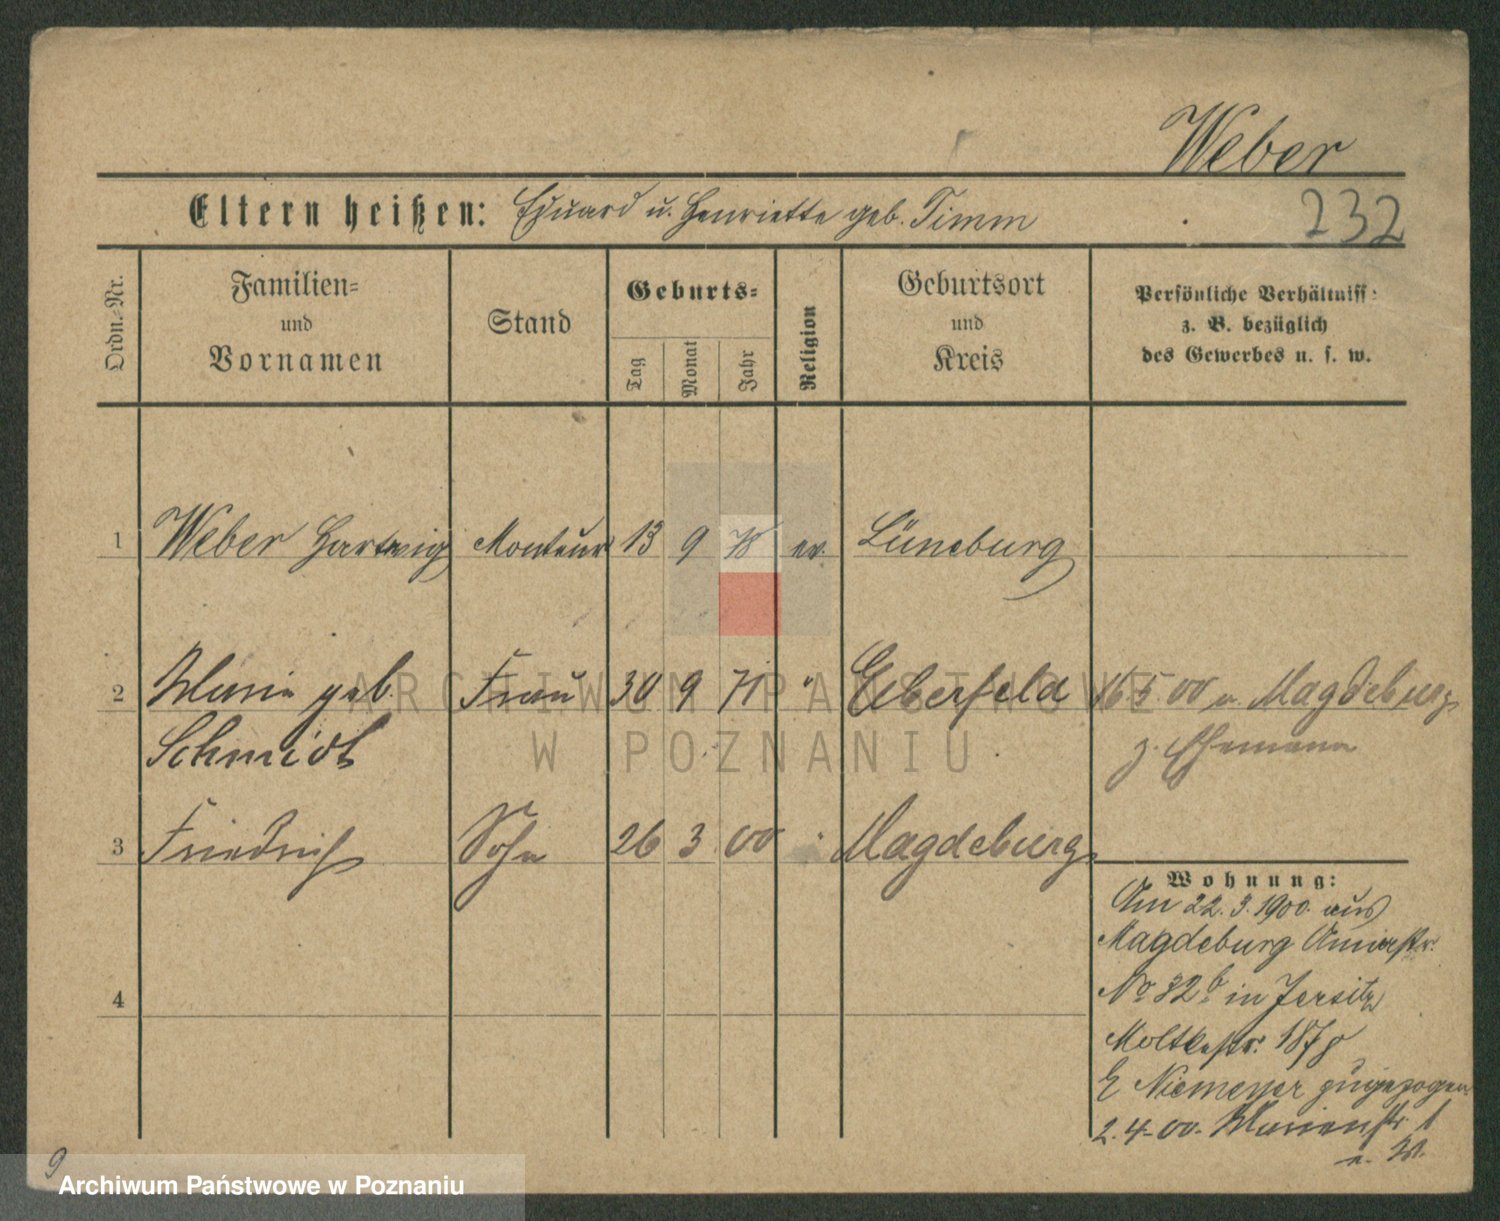 Weber
Eltern heißen: Eduard u. Henriette geb. Timm
232
Ordn.-Nr.
Familien-
und
Vornamen
Stand
Geburts-
Tag
Monat
Jahr
Religion
Geburtsort
und
Kreis
Persönliche Verhältniss:
z. B. bezüglich
des Gewerbes u. s. w.
1 Weber Hartwig Monteur 13 9 78 ev. Lüneburg
2 Marie geb. Frau 30 9 71 " Elberfeld 16 5 00 v. Magdeburg
Schmidt z. Ehemann
3 Friedrich Sohn 26 3 00 Magdeburg
Wohnung:
Am 22.3.1900 aus
Magdeburg
No 32b in Jersitz
Moltkestr. 18
Niemeyer zugezogen
2.4.00. Marienstr. 1
4
9
ARCHIWUM PAŃSTWOWE
W POZNANIU
Archiwum Państwowe w Poznaniu